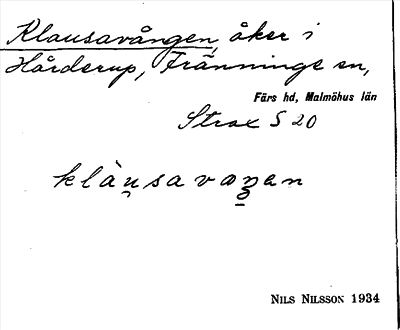 Klausavången, åker i
Hårderup, Tränninge sn,
Färs hd, Malmöhus län
Strax S 20
klàu̯savaŋ̲en
NILS NILSSON 1934